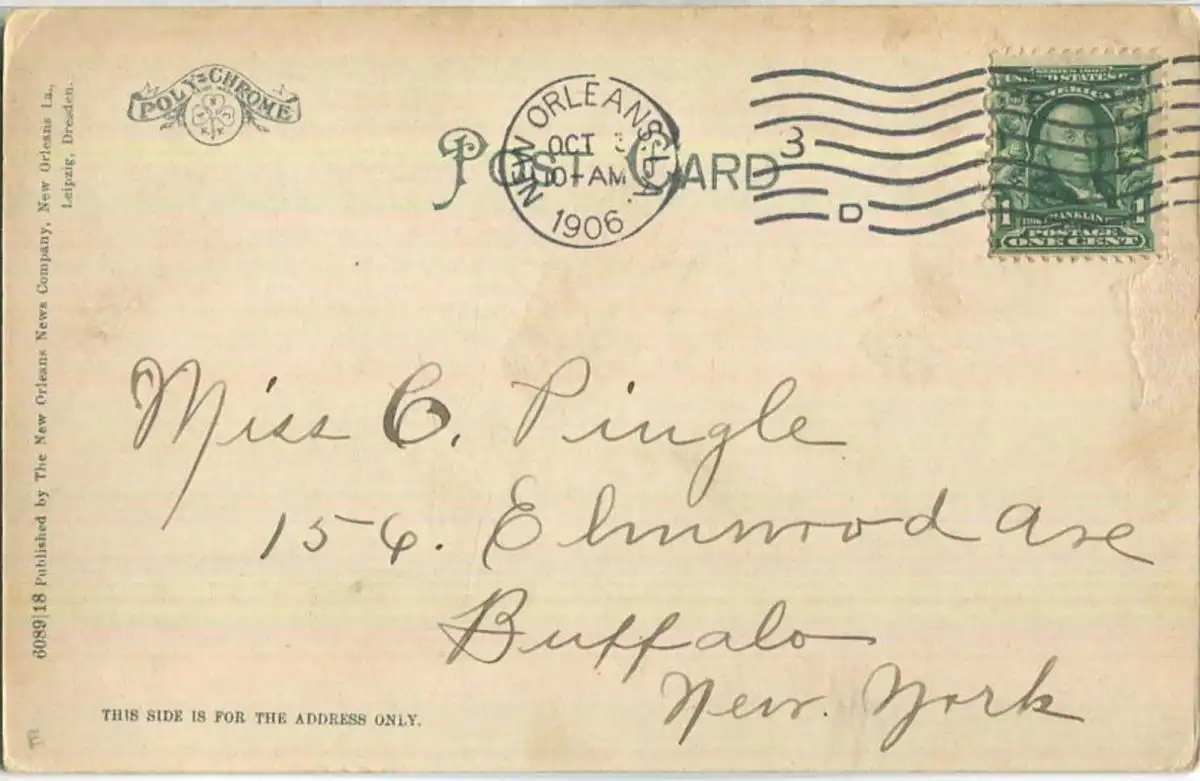 POLY=CHROME
POST CARD
NEW ORLEANS, LA.
OCT 3
10-AM
1906
3
D
SERIES 1902
UNITED STATES OF AMERICA
FRANKLIN
1 1
POSTAGE
ONE CENT
6089|18 Published by The New Orleans News Company, New Orleans La.,
Leipzig, Dresden.
Miss C. Pingle
156. Elmwood Ave
Buffalo
New. York
THIS SIDE IS FOR THE ADDRESS ONLY.
E